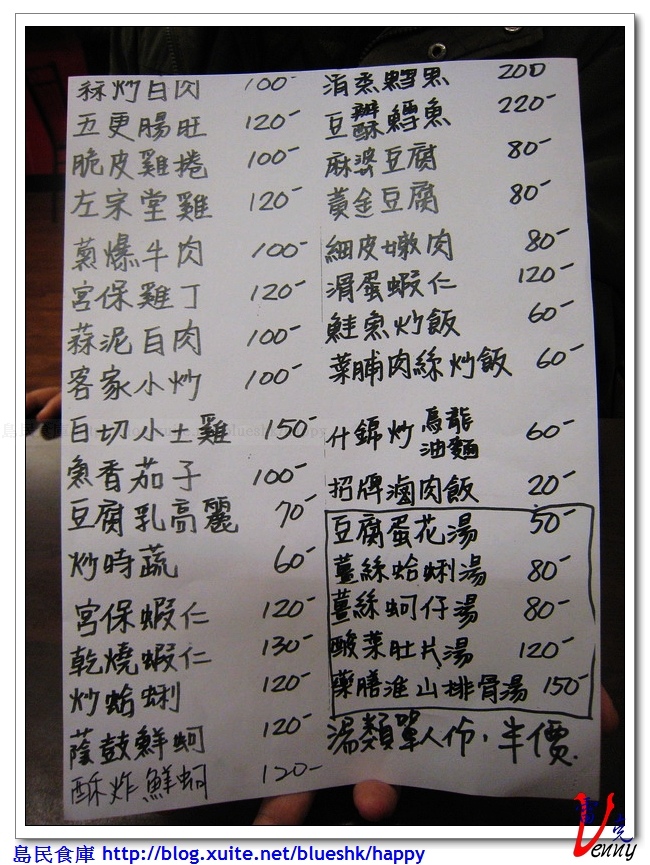 蒜炒白肉 100-
五更腸旺 120-
脆皮雞捲 100-
左宗堂雞 120-
蔥爆牛肉 100-
宮保雞丁 120-
蒜泥白肉 100-
客家小炒 100-
白切小土雞 150-
魚香茄子 100-
豆腐乳高麗 70-
炒時蔬 60-
宮保蝦仁 120-
乾燒蝦仁 130-
炒蛤蜊 120-
蔭鼓鮮蚵 120-
酥炸鮮蚵 120-
清蒸鱈魚 200
豆酥鱈魚 220-
麻婆豆腐 80-
黃金豆腐 80-
細皮嫩肉 80-
滑蛋蝦仁 120-
鮭魚炒飯 60-
菜脯肉絲炒飯 60-
什錦炒烏龍油麵 60-
招牌滷肉飯 20-
豆腐蛋花湯 50-
薑絲蛤蜊湯 80-
薑絲蚵仔湯 80-
酸菜肚片湯 120-
藥膳淮山排骨湯 150-
湯類單人份,半價.
Venny
島民食庫 http://blog.xuite.net/blueshk/happy